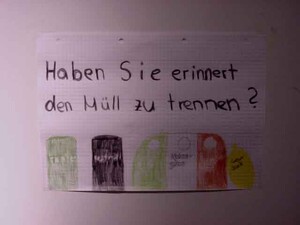 Haben Sie erinnert
den Müll zu trennen?